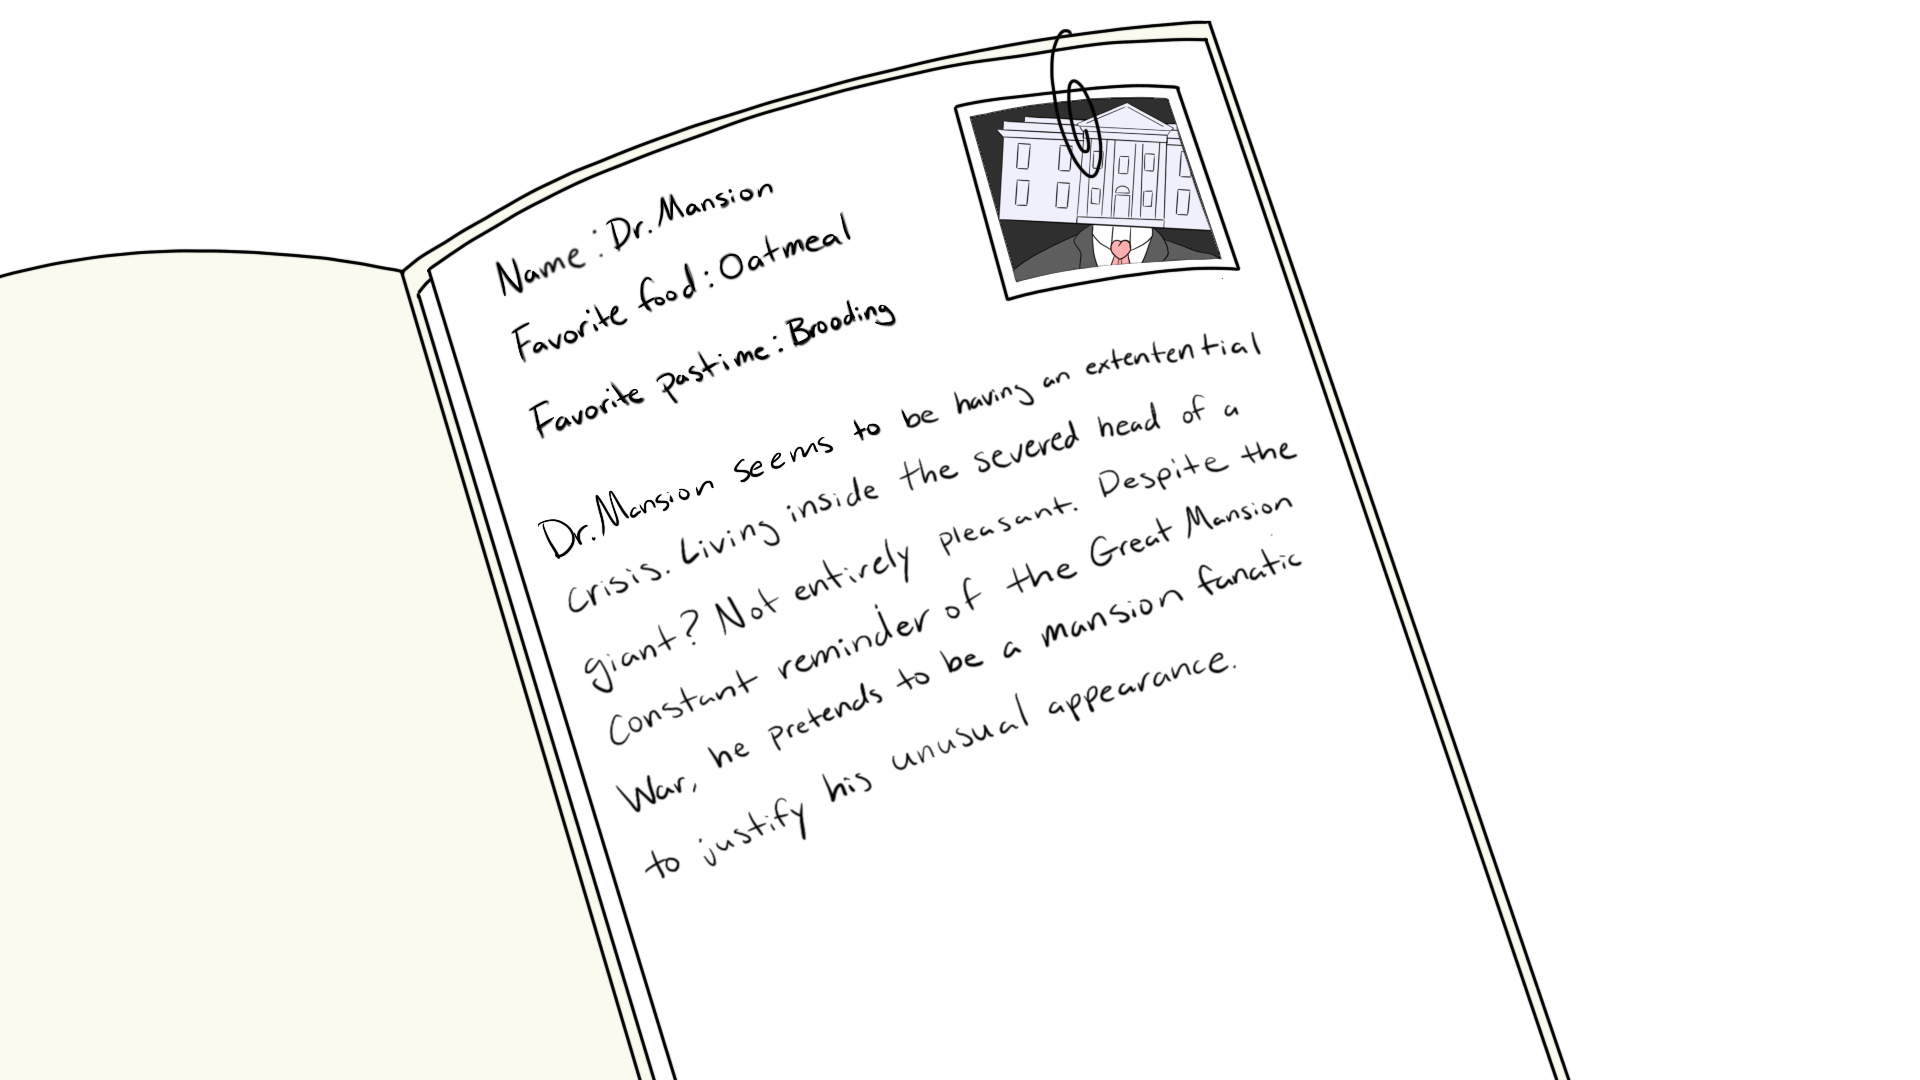 Name: Dr. Mansion
Favorite food: Oatmeal
Favorite pastime: Brooding
Dr. Mansion seems to be having an extentential
crisis. Living inside the severed head of a
giant? Not entirely pleasant. Despite the
Constant reminder of the Great Mansion
War, he pretends to be a mansion fanatic
to justify his unusual appearance.